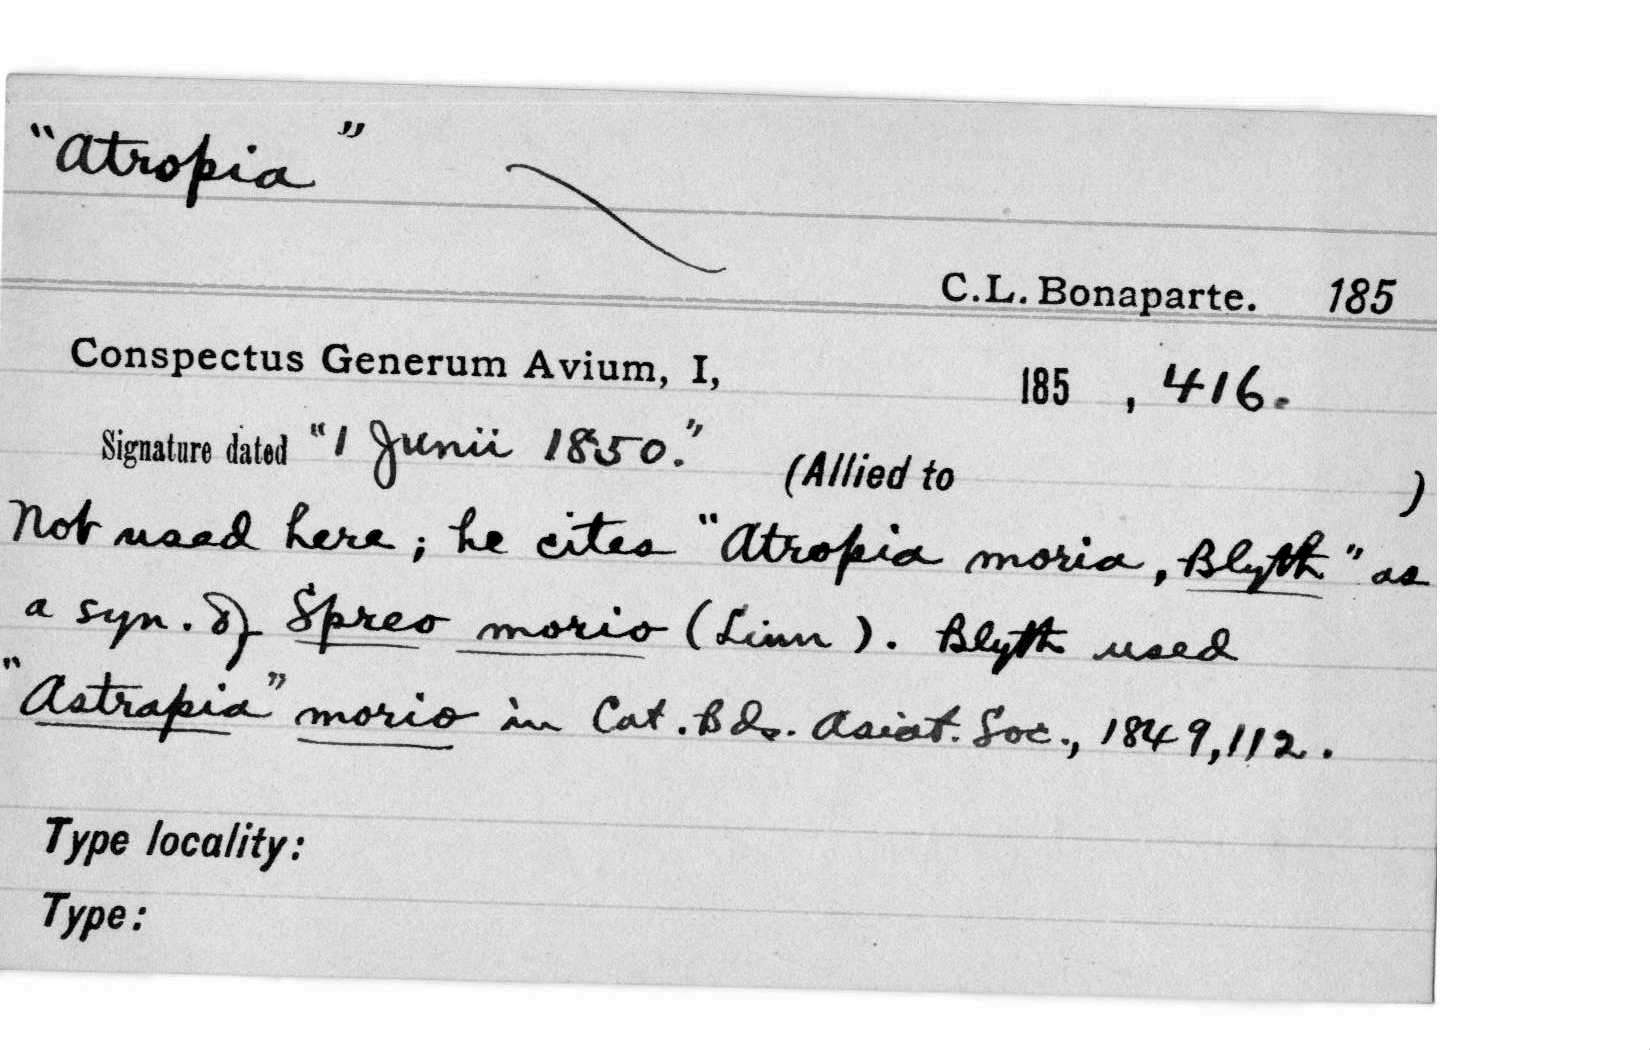 "Atropia"
C.L. Bonaparte. 185
Conspectus Generum Avium, I, 185 , 416.
Signature dated "1 Junii 1850." (Allied to )
Not used here; he cites "Atropia moria, Blyth" as
a syn. of Spreo morio (Linn). Blyth used
"Astrapia" morio in Cat. Bds. Asiat. Soc., 1849, 112.
Type locality:
Type: